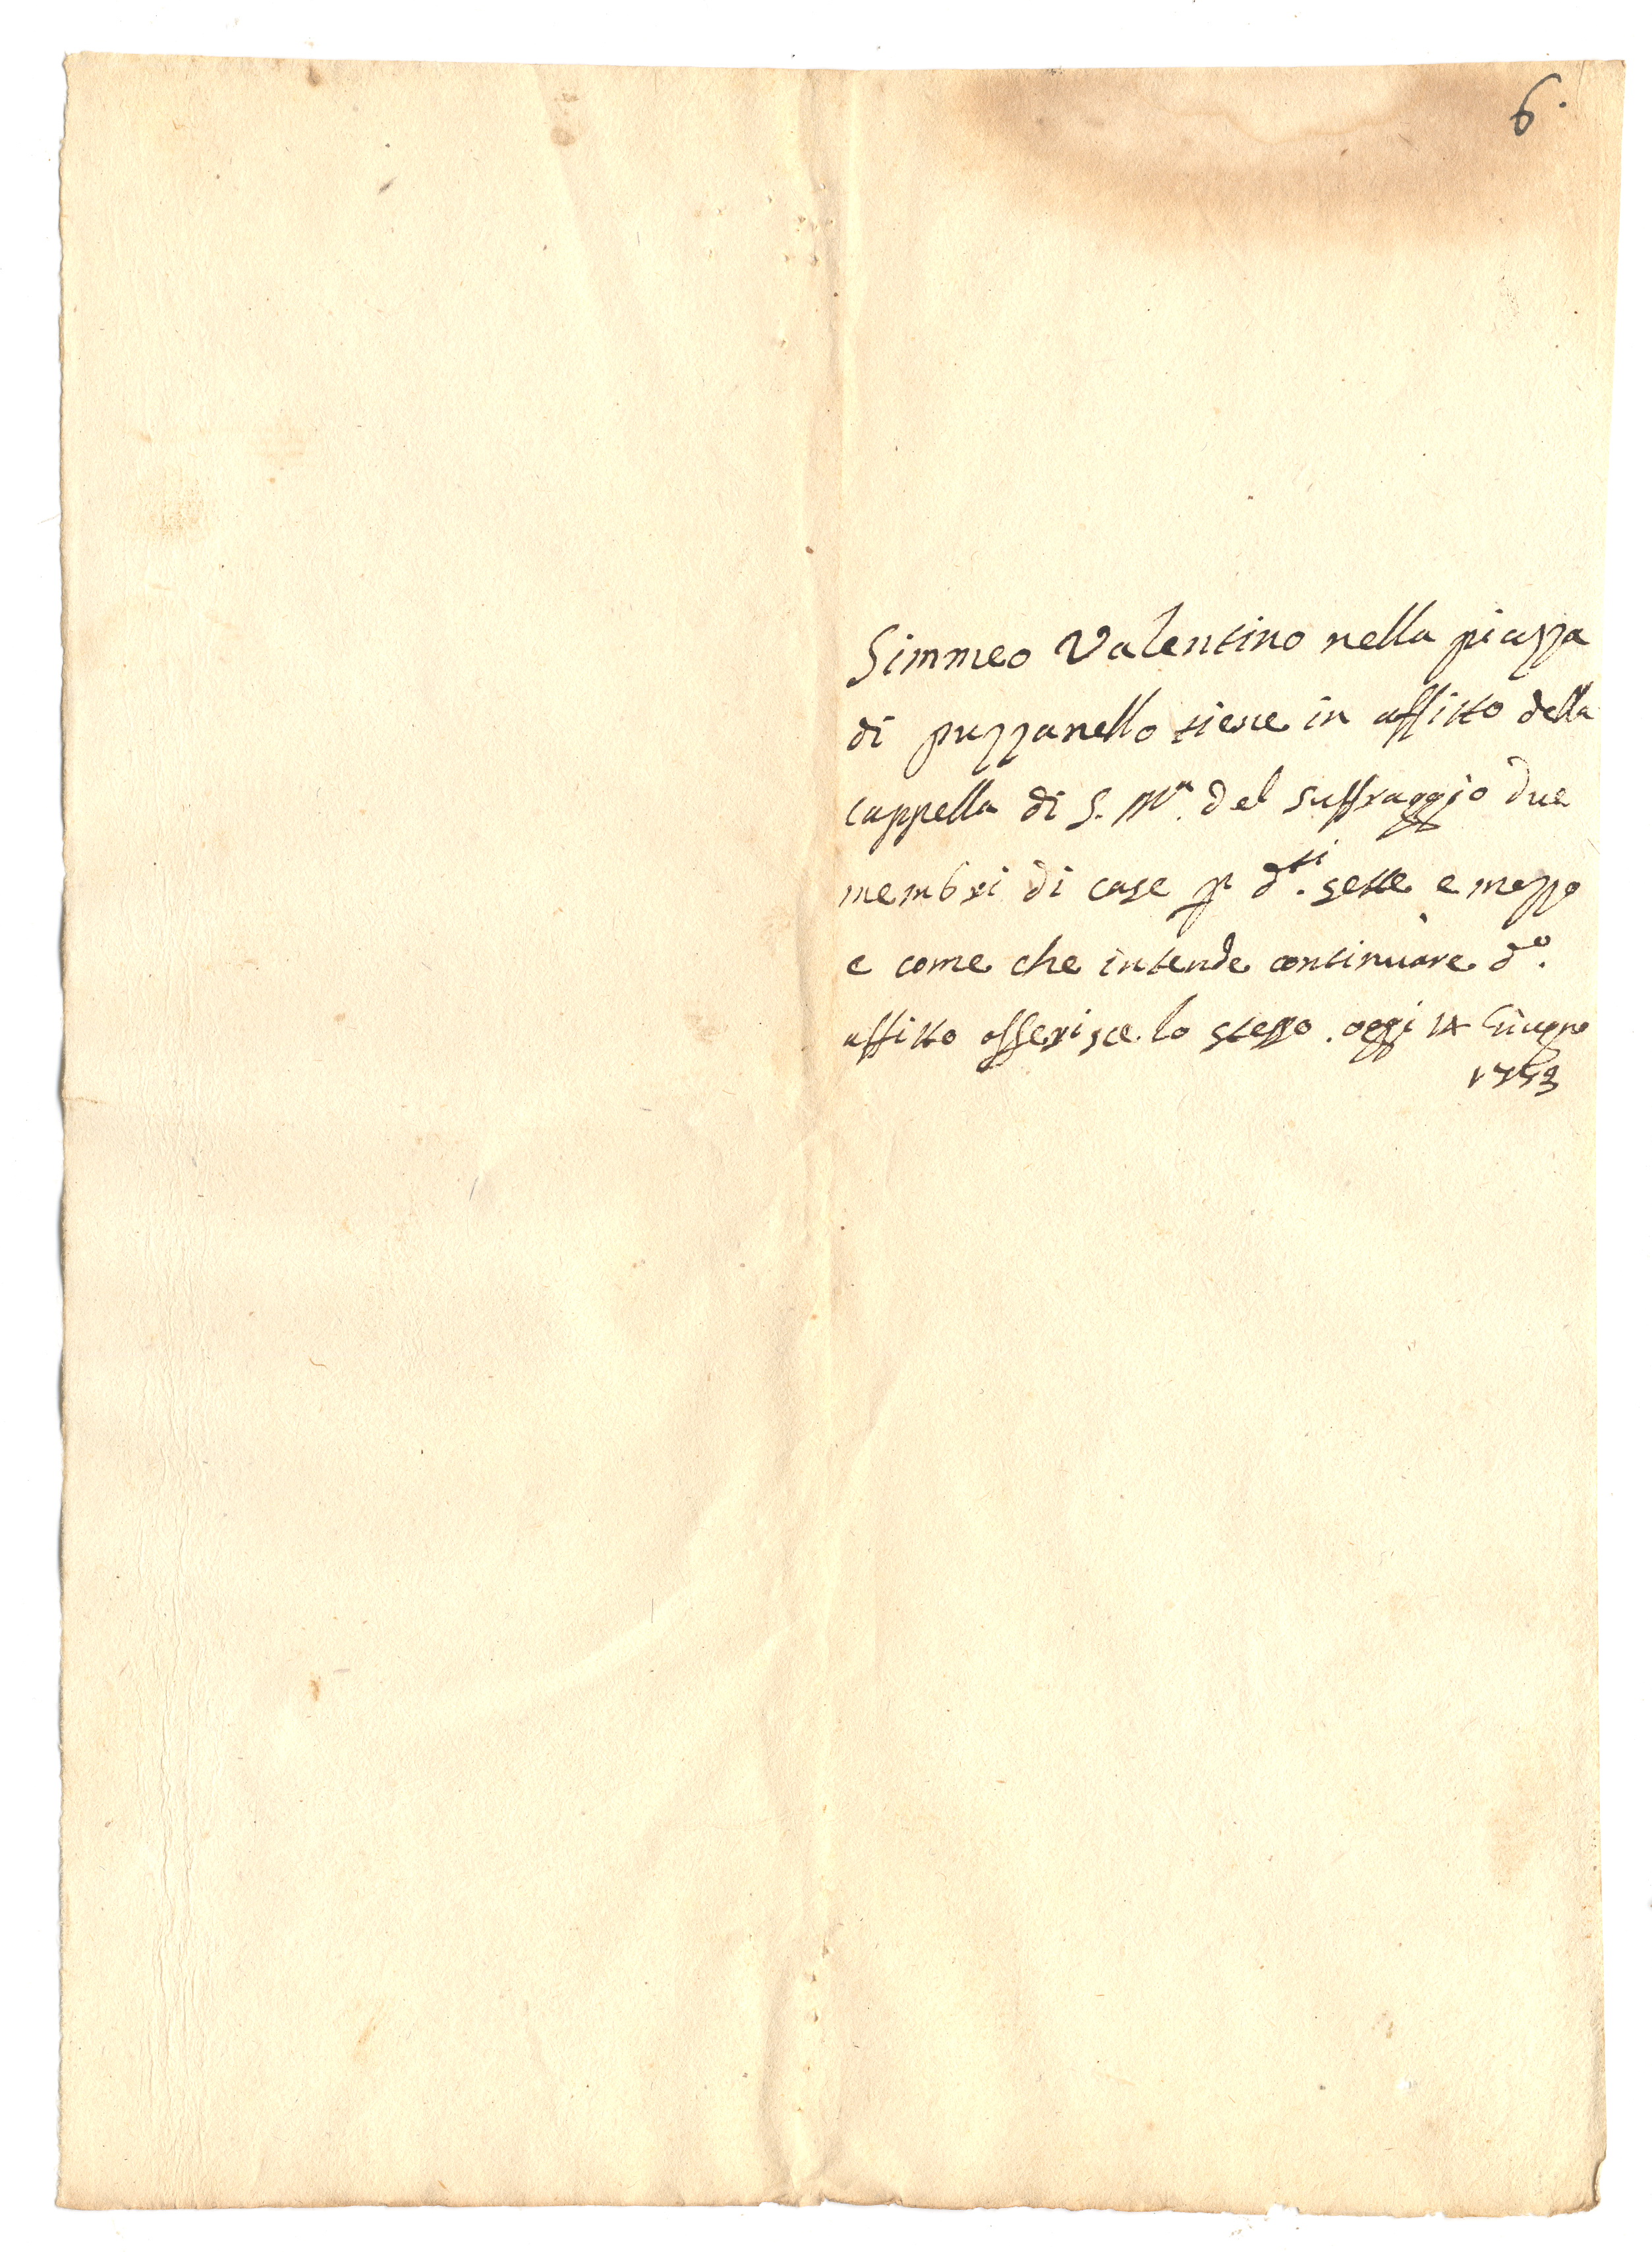 6.
Simmeo Valentino nella piazza
di puzzanello tiene in affitto della
cappella di S. Mᵃ. del suffraggio due
membri di case p dᵗⁱ. sette e mezzo
e come che intende continuare dᵒ.
affitto offerisce lo stesso. oggi 14 Giugno
1753